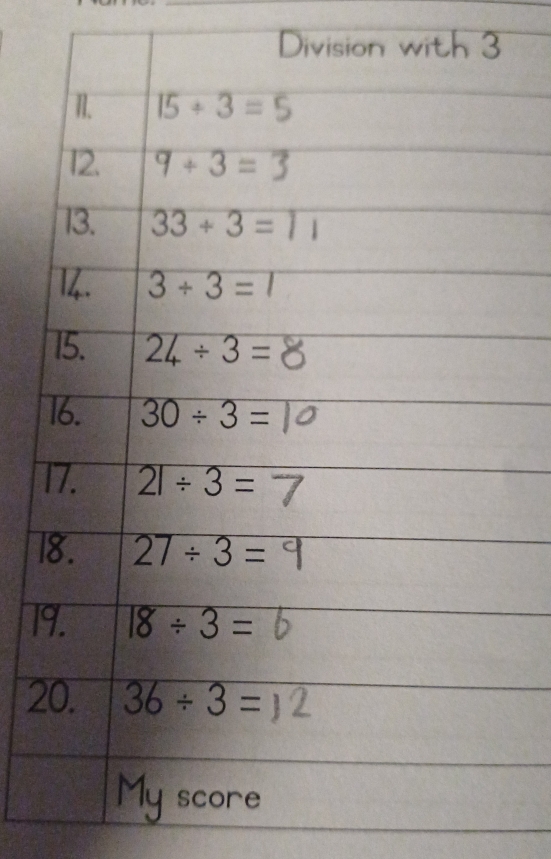 Name:
Division with 3
11. 15 ÷ 3 = 5
12. 9 ÷ 3 = 3
13. 33 ÷ 3 = 11
14. 3 ÷ 3 = 1
15. 24 ÷ 3 = 8
16. 30 ÷ 3 = 10
17. 21 ÷ 3 = 7
18. 27 ÷ 3 = 9
19. 18 ÷ 3 = 6
20. 36 ÷ 3 = 12
My score